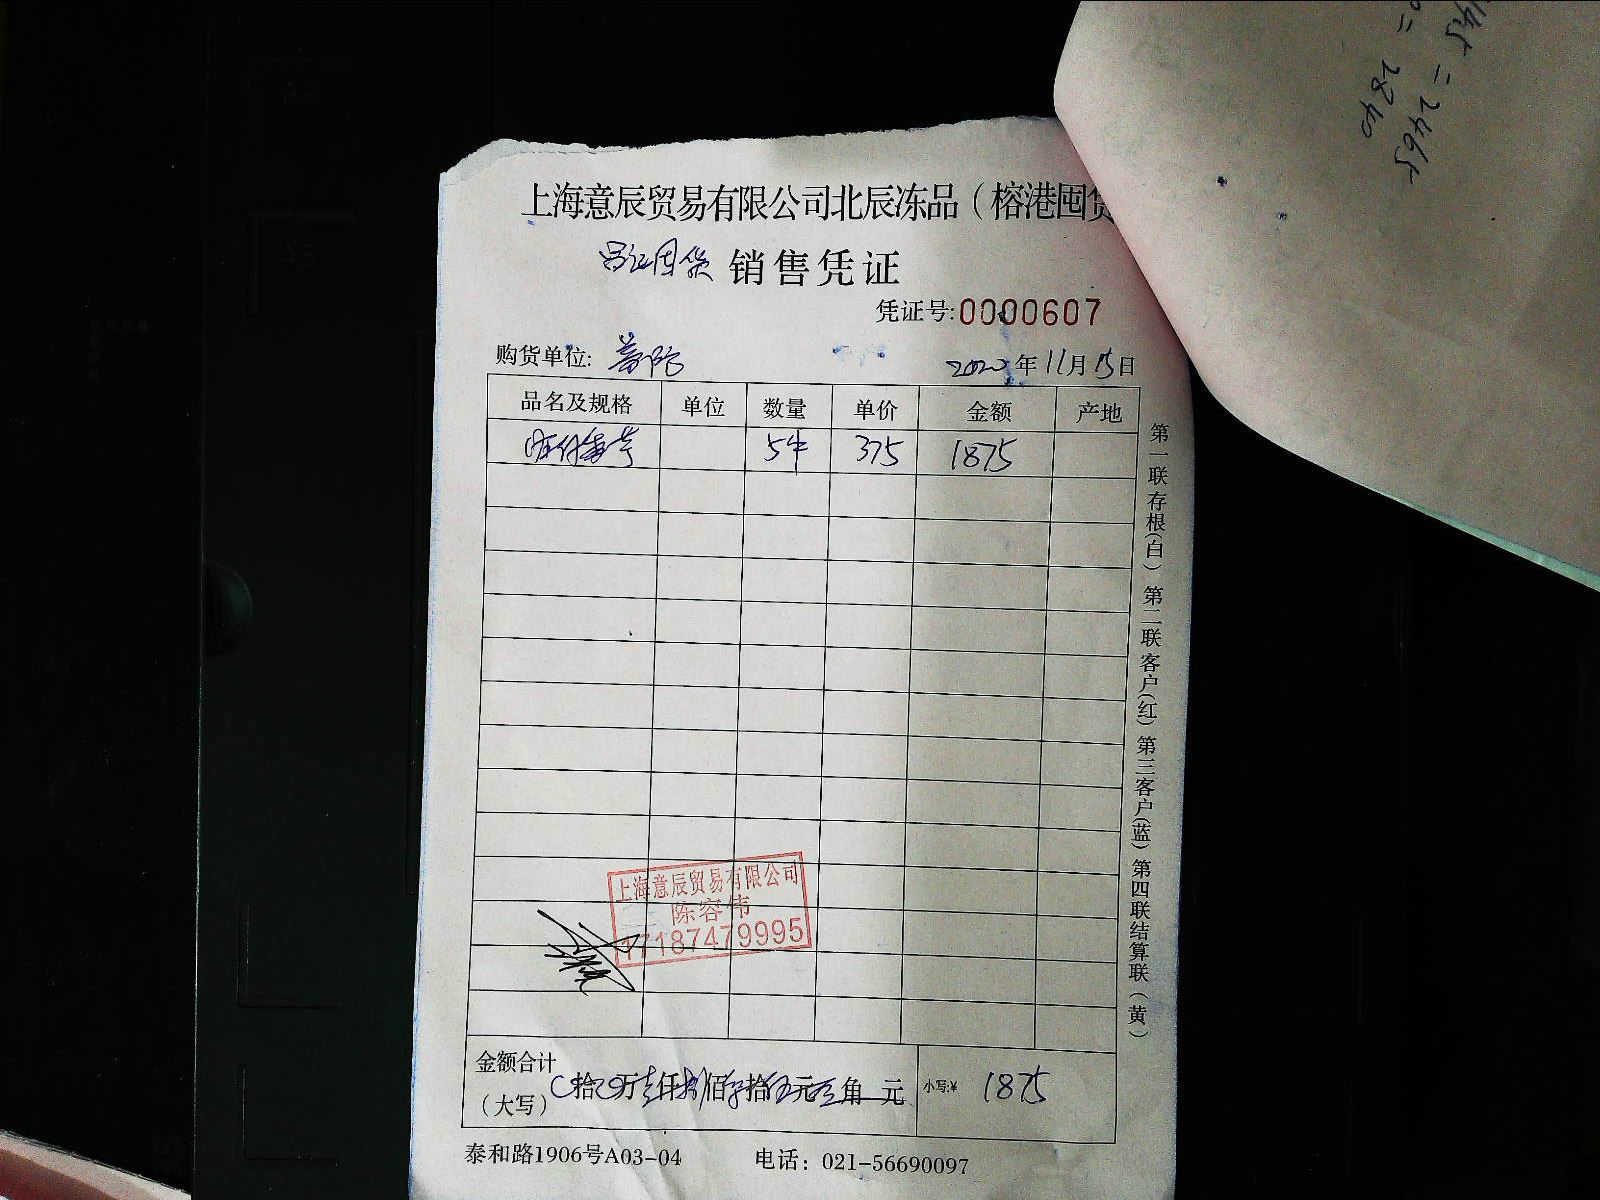 145 = 2465
0 = 2840
上海意辰贸易有限公司北辰冻品（榕港囤货
销售凭证
凭证号:0000607
购货单位: 普陀 2020年11月15日
品名及规格 单位 数量 单价 金额 产地
5件 375 1875
第一联存根(白) 第二联客户(红) 第三客户(蓝) 第四联结算联(黄)
上海意辰贸易有限公司
陈容伟
17187479995
金额合计
(大写) 拾 万壹仟捌佰柒拾伍元 角 元 小写:¥ 1875
泰和路1906号A03-04 电话: 021-56690097